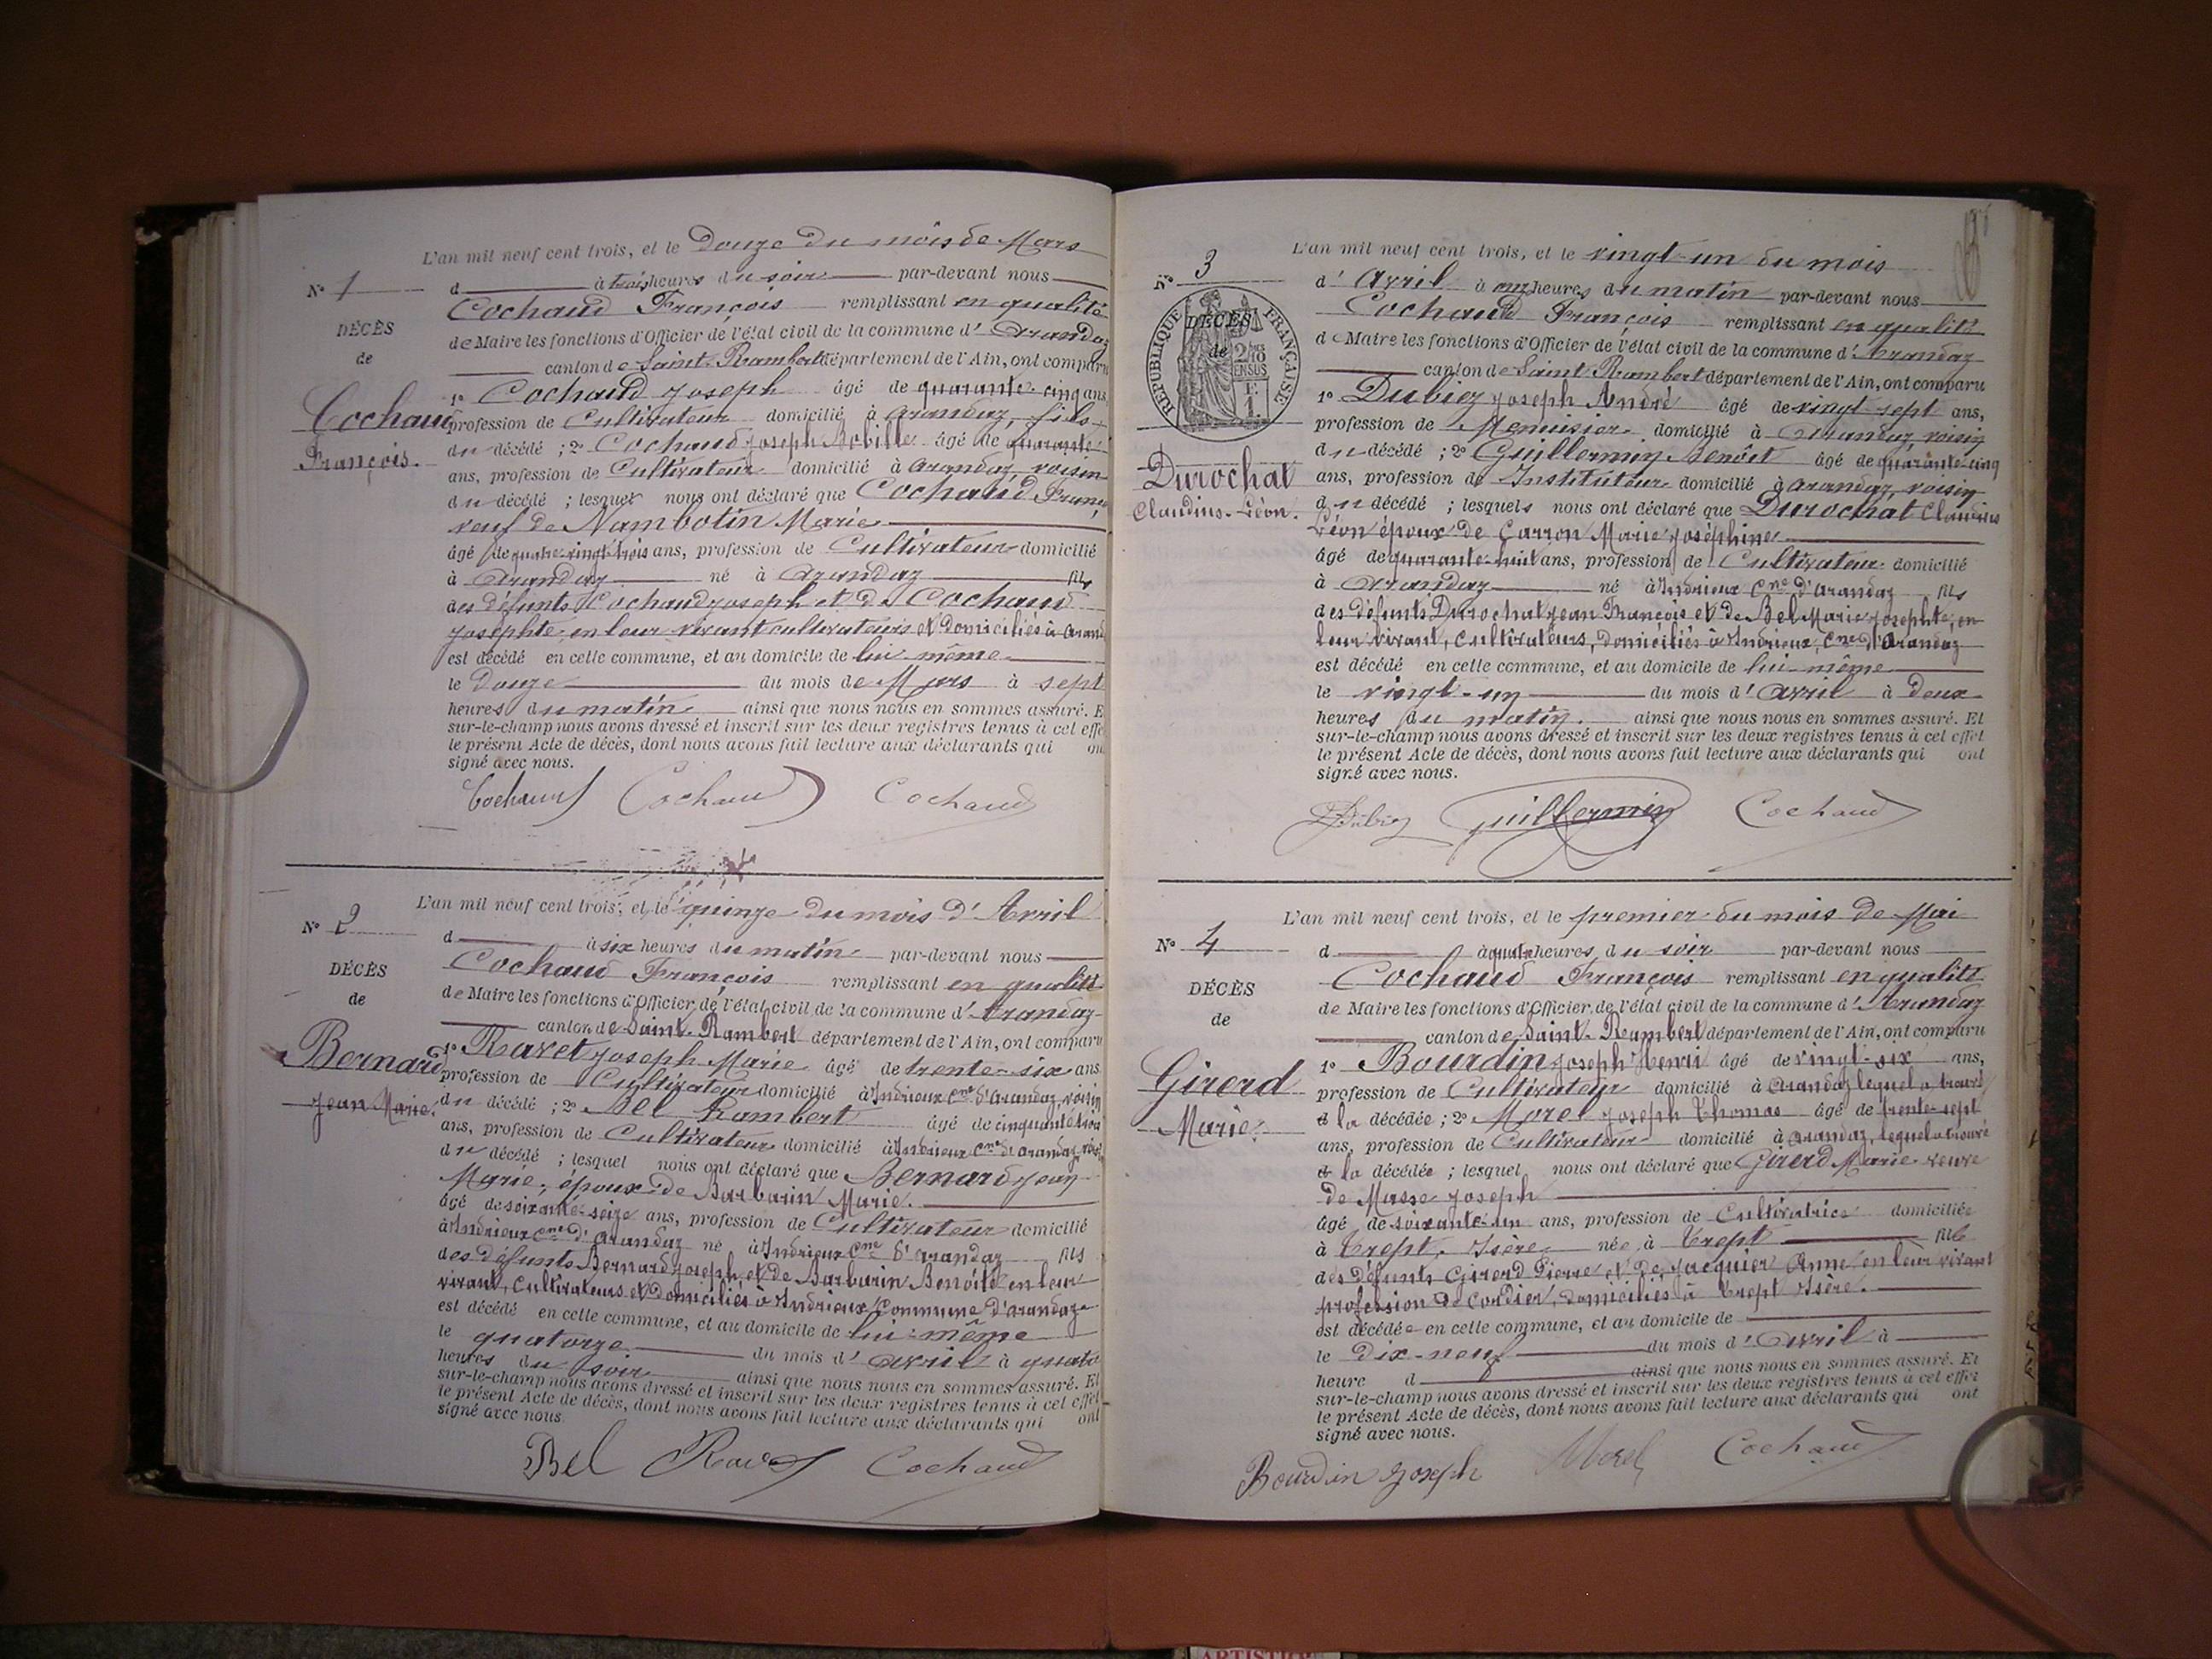 L'an mil neuf cent trois, et le Douze du mois de Mars
N° 1
d à trois heures du soir par-devant nous
Cochaud François remplissant en qualité
DÉCÈS
de Maire les fonctions d'Officier de l'état civil de la commune d'Arandaz
de
canton de Saint-Rambert département de l'Ain, ont comparu
1° Cochaud Joseph âgé de quarante-cinq ans
Cochaud
profession de Cultivateur domicilié à Arandaz, fils
du décédé ; 2° Cochaud Joseph âgé de quarante
François.
ans, profession de Cultivateur domicilié à Arandaz, voisin
du décédé ; lesquels nous ont déclaré que Cochaud
veuf de Nambotin Marie
âgé de quatre-vingt-trois ans, profession de Cultivateur domicilié
à Arandaz né à Arandaz fils
des défunts Cochaud Joseph et de Cochaud
Josephte, en leur vivant cultivateurs et domiciliés à
est décédé en cette commune, et au domicile de lui-même
le Douze du mois de Mars à sept
heures du matin ainsi que nous nous en sommes assuré. E
sur-le-champ nous avons dressé et inscrit sur les deux registres tenus à cet effe
le présent Acte de décès, dont nous avons fait lecture aux déclarants qui on
signé avec nous.
Cochaud Cochaud Cochaud
L'an mil neuf cent trois, et le quinze du mois d'Avril
N° 2
d à six heures du matin par-devant nous
Cochaud François remplissant en qualité
DÉCÈS
de Maire les fonctions d'Officier de l'état civil de la commune d'Arandaz
de
canton de Saint-Rambert département de l'Ain, ont comparu
Bernard
1° Ravet Joseph Marie âgé de trente-six ans
profession de Cultivateur domicilié à Indrieux Cne d'Arandaz, voisin
Jean Marie.
du décédé ; 2° Bel Rambert âgé de cinquante
ans, profession de Cultivateur domicilié à Indrieux Cne d'Arandaz
du décédé ; lesquel nous ont déclaré que Bernard Jean
Marie, époux de Barbarin Marie.
âgé de soixante-seize ans, profession de Cultivateur domicilié
à Indrieux Cne d'Arandaz né à Indrieux Cne d'Arandaz fils
des défunts Bernard Joseph et de Barbarin Benoîte en leur
vivant, Cultivateurs et domiciliés à Indrieux, Commune d'Arandaz
est décédé en cette commune, et au domicile de lui-même
le quatorze du mois d'Avril à quatre
heures du soir ainsi que nous nous en sommes assuré. Et
sur-le-champ nous avons dressé et inscrit sur les deux registres tenus à cet effet
le présent Acte de décès, dont nous avons fait lecture aux déclarants qui ont
signé avec nous
Bel Ravet Cochaud
L'an mil neuf cent trois, et le vingt-un du mois
N° 3
d'Avril à onze heures du matin par-devant nous
Cochaud François remplissant en qualité
RÉPUBLIQUE FRANÇAISE
DÉCÈS
de
de Maire les fonctions d'Officier de l'état civil de la commune d'Arandaz
canton de Saint-Rambert département de l'Ain, ont comparu
1° Dubiez Joseph André âgé de vingt-sept ans,
profession de Menuisier domicilié à Arandaz, voisin
du décédé ; 2° Guillermin Benoît âgé de quarante-cinq
Durochat
ans, profession de Instituteur domicilié à Arandaz, voisin
Claudius-Léon.
du décédé ; lesquels nous ont déclaré que Durochat Claudius
Léon époux de Carron Marie Joséphine
âgé de quarante-huit ans, profession de Cultivateur domicilié
à Arandaz né à Indrieux Cne d'Arandaz fils
des défunts Durochat Jean François et de Bel Marie Josephte, en
leur vivant, cultivateurs, domiciliés à Indrieux, Cne d'Arandaz
est décédé en cette commune, et au domicile de lui-même
le vingt-un du mois d'Avril à Deux
heures du matin. ainsi que nous nous en sommes assuré. Et
sur-le-champ nous avons dressé et inscrit sur les deux registres tenus à cet effet
le présent Acte de décès, dont nous avons fait lecture aux déclarants qui ont
signé avec nous.
Dubiez Guillermin Cochaud
L'an mil neuf cent trois, et le premier du mois de Mai
N° 4
d à quatre heures du soir par-devant nous
Cochaud François remplissant en qualité
DÉCÈS
de Maire les fonctions d'Officier de l'état civil de la commune d'Arandaz
de
canton de Saint-Rambert département de l'Ain, ont comparu
1° Bourdin Joseph Henri âgé de vingt-six ans,
Girerd
profession de Cultivateur domicilié à Arandaz lequel a trouvé
Marie.
la décédée ; 2° Morel Joseph Thomas âgé de trente-sept
ans, profession de Cultivateur domicilié à Arandaz, lequel a trouvé
la décédée ; lesquel nous ont déclaré que Girerd Marie veuve
de Masse Joseph
âgé de soixante-un ans, profession de Cultivatrice domiciliée
à Trept, Isère née à Trept fille
des défunts Girerd Pierre et de Jacquier Anne, en leur vivant
profession de cordier, domiciliés à Trept Isère.
est décédée en cette commune, et au domicile de
le Dix-neuf du mois d'Avril à
heure d ainsi que nous nous en sommes assuré. Et
sur-le-champ nous avons dressé et inscrit sur les deux registres tenus à cet effet
le présent Acte de décès, dont nous avons fait lecture aux déclarants qui ont
signé avec nous.
Bourdin Joseph Morel Cochaud
ARTISTIQUE